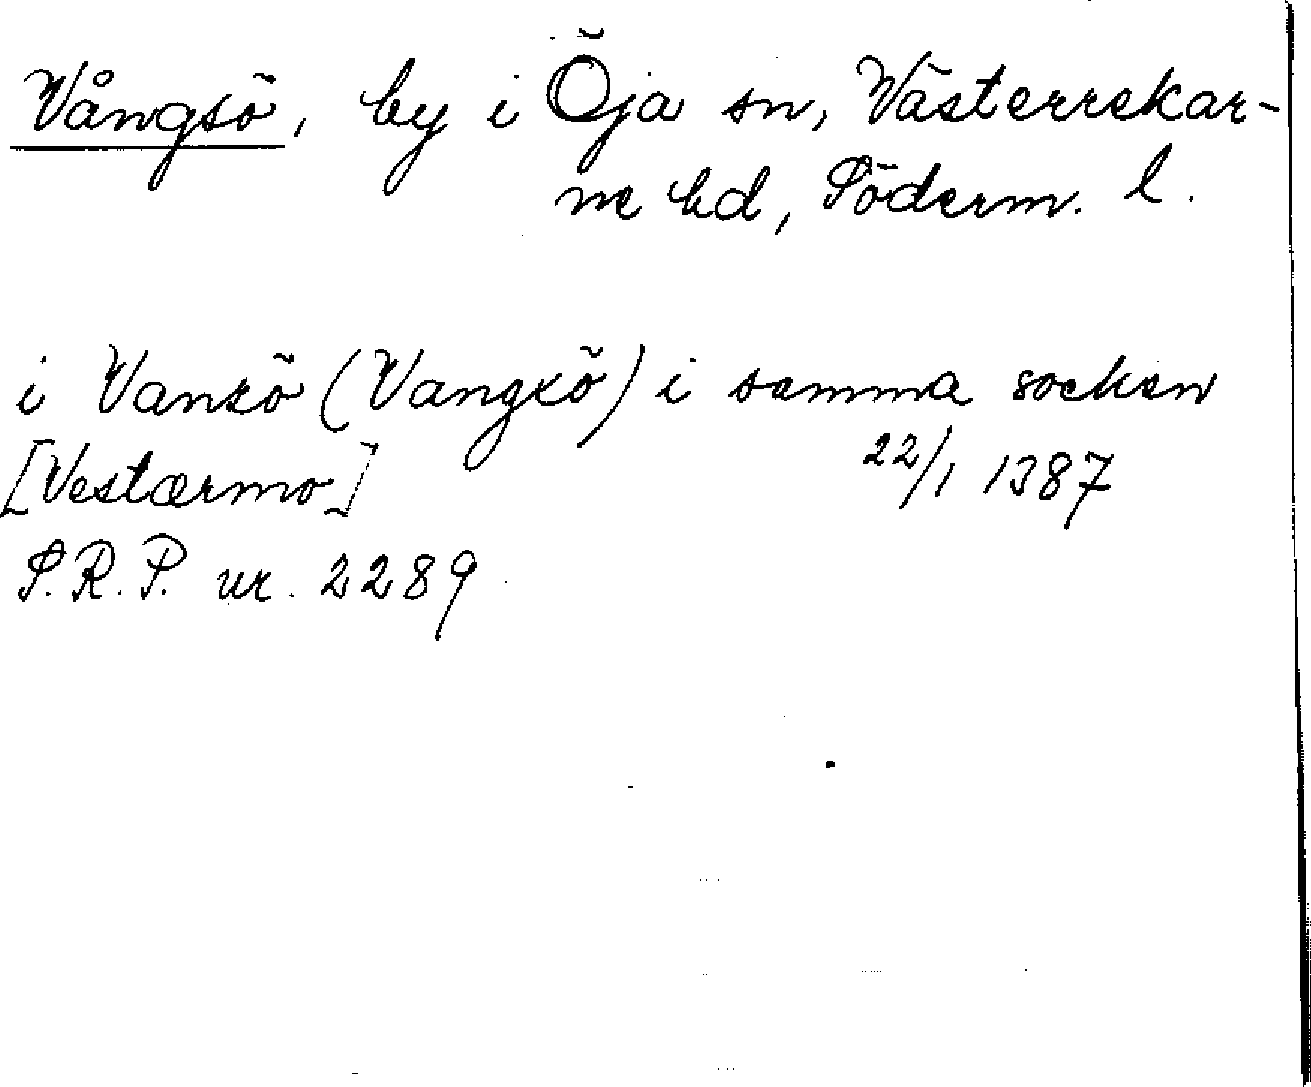 Vångsö, by i Öja sn, Västerrekar-
ne hd, Söderm. l.
i Vansö (Vangxö) i samma socken
[Vestærmo] 22/1 1387
S.R.P. nr. 2289